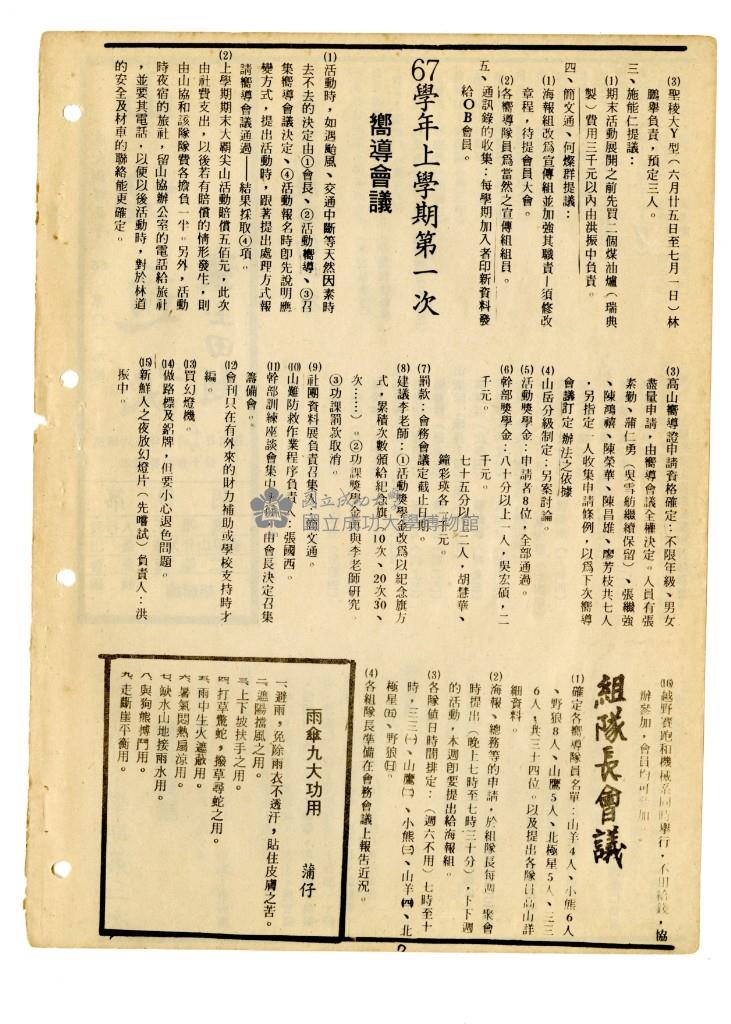 (3)聖稜大Y型(六月廿五日至七月一日)林
鵬舉負責,預定三人。
三、施能仁提議:
(1)期末活動展開之前先買二個煤油爐(瑞典
製)費用三千元以內由洪振中負責。
四、簡文通、何燦群提議:
(1)海報組改爲宣傳組並加強其職責—須修改
章程,待提會員大會。
(2)各嚮導隊員爲當然之宣傳組組員。
五、通訊錄的收集:每學期加入者印新資料發
給OB會員。
67學年上學期第一次
嚮導會議
(1)活動時,如遇颱風、交通中斷等天然因素時
去不去的決定由①會長、②活動嚮導、③召
集嚮導會議決定、④活動報名時即先說明應
變方式,提出活動時,跟著提出處理方式報
請嚮導會議通過——結果採取④項。
(2)上學期期末大霸尖山活動賠償五佰元,此次
由社費支出,以後若有賠償的情形發生,則
由山協和該隊隊費各擔負一半。另外,活動
時夜宿的旅社,留山協辦公室的電話給旅社
,並要其電話,以便以後活動時,對於林道
的安全及材車的聯絡能更確定。
(3)高山嚮導證申請資格確定:不限年級、男女
儘量申請,由嚮導會議全權決定。人員有張
素勤、蒲仁勇(吳雪紡繼續保留)、張繼強
、陳鴻禧、陳榮華、陳昌雄、廖芳枝共七人
,另指定一人收集申請條例,以爲下次嚮導
會議訂定 辦法之依據
(4)山岳分級制定:另案討論。
(5)活動獎學金:申請者8位,全部通過。
(6)幹部獎學金:八十分以上一人,吳宏碩,二
千元。
七十五分以 二人,胡慧華、
鐘彩瑛各 千元。
(7)罰款:會務會議定截止日期。
(8)建議李老師:①活動獎學金改爲以紀念旗方
式,累積次數頒給紀念旗(10次、20次30、
次……)。②功課獎學金再與李老師研究。
③功課罰款取消。
(9)社團資料展負責召集人:簡文通。
(10)山難防救作業程序負責 :張國西。
(11)幹部訓練座談會集中 由會長決定召集
籌備會。
(12)會刊只在有外來的財力補助或學校支持時才
編。
(13)買幻燈機。
(14)做路標及鋁牌,但要小心退色問題。
(15)新鮮人之夜放幻燈片(先嚐試)負責人:洪
振中。
(16)越野賽跑和機械系同時舉行,不用給錢,協
辦參加,會員均可參加。
組隊長會議
(1)確定各嚮導隊員名單:山羊4人、小熊6人
、野狼8人、山鷹5人、北極星5人、三三
6人,共三十四位。以及提出各隊員高山詳
細資料。
(2)海報、總務等的申請,於組隊長每週 聚會
時提出(晚上七時至七時三十分),下下週
的活動,本週卽要提出給海報組。
(3)各隊値日時間排定:(週六不用)七時至十
時,三三㈠、山鷹㈡、小熊㈢、山羊㈣、北
極星㈤、野狼㈰。
(4)各組隊長準備在會務會議上報告近況。
雨傘九大功用 蒲仔
一、避雨,免除雨衣不透汗,貼住皮膚之苦。
二、遮陽擋風之用。
三、上下坡扶手之用。
四、打草驚蛇,撥草尋蛇之用。
五、雨中生火遮蔽用。
六、暑氣悶熱扇涼用。
七、缺水山地接雨水用。
八、與狗熊搏鬥用。
九、走斷崖平衡用。
國立成功大學
國立成功大學博物館